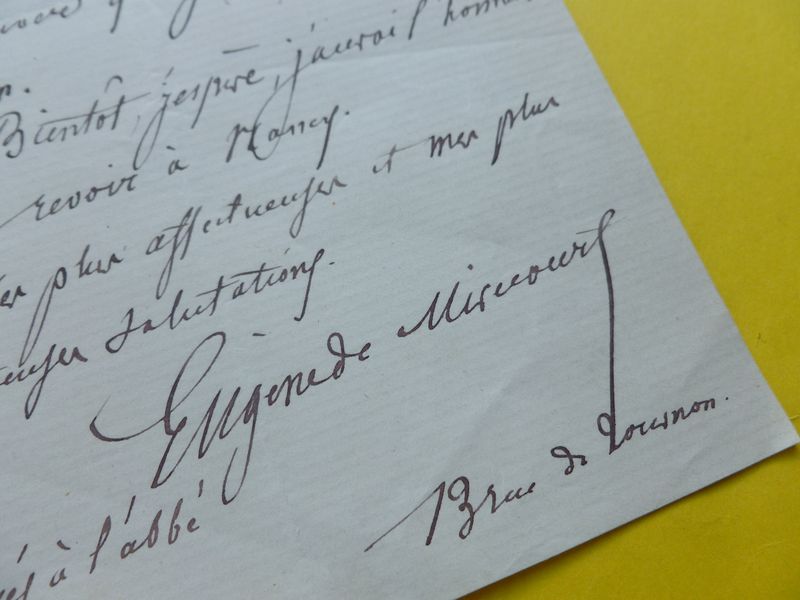 Bientôt, j'espère, j'aurai l'honn
revoir à Nancy.
plus affectueuses et mes plus
salutations.
Eugène de Mirecourt
13 rue de Tournon.
à l'abbé